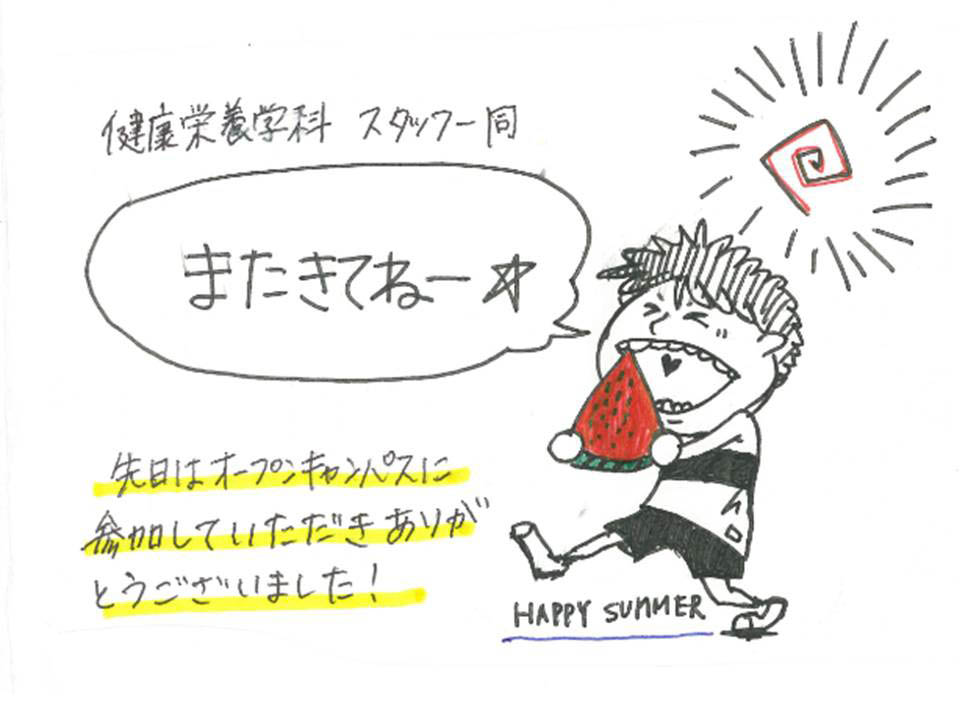 健康栄養学科 スタッフ一同
またきてねー☆
先日はオープンキャンパスに
参加していただきありが
とうございました！
HAPPY SUMMER